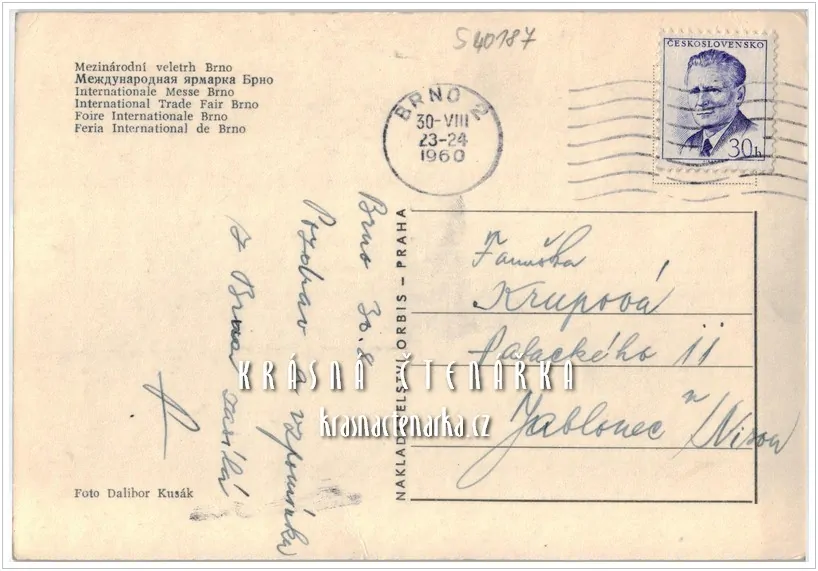 S40187
Mezinárodní veletrh Brno
Международная ярмарка Брно
Internationale Messe Brno
International Trade Fair Brno
Foire Internationale Brno
Feria International de Brno
BRNO 2
30-VIII
23-24
1960
ČESKOSLOVENSKO
30h
Brno 30.8
Pozdrav a vzpomínku
z Brna zasílá
NAKLADATELSTVÍ ORBIS - PRAHA
Krupová
Palackého 11
Jablonec n/Nisou
KRÁSNÁ ČTENÁŘKA
krasnactenarka.cz
Foto Dalibor Kusák